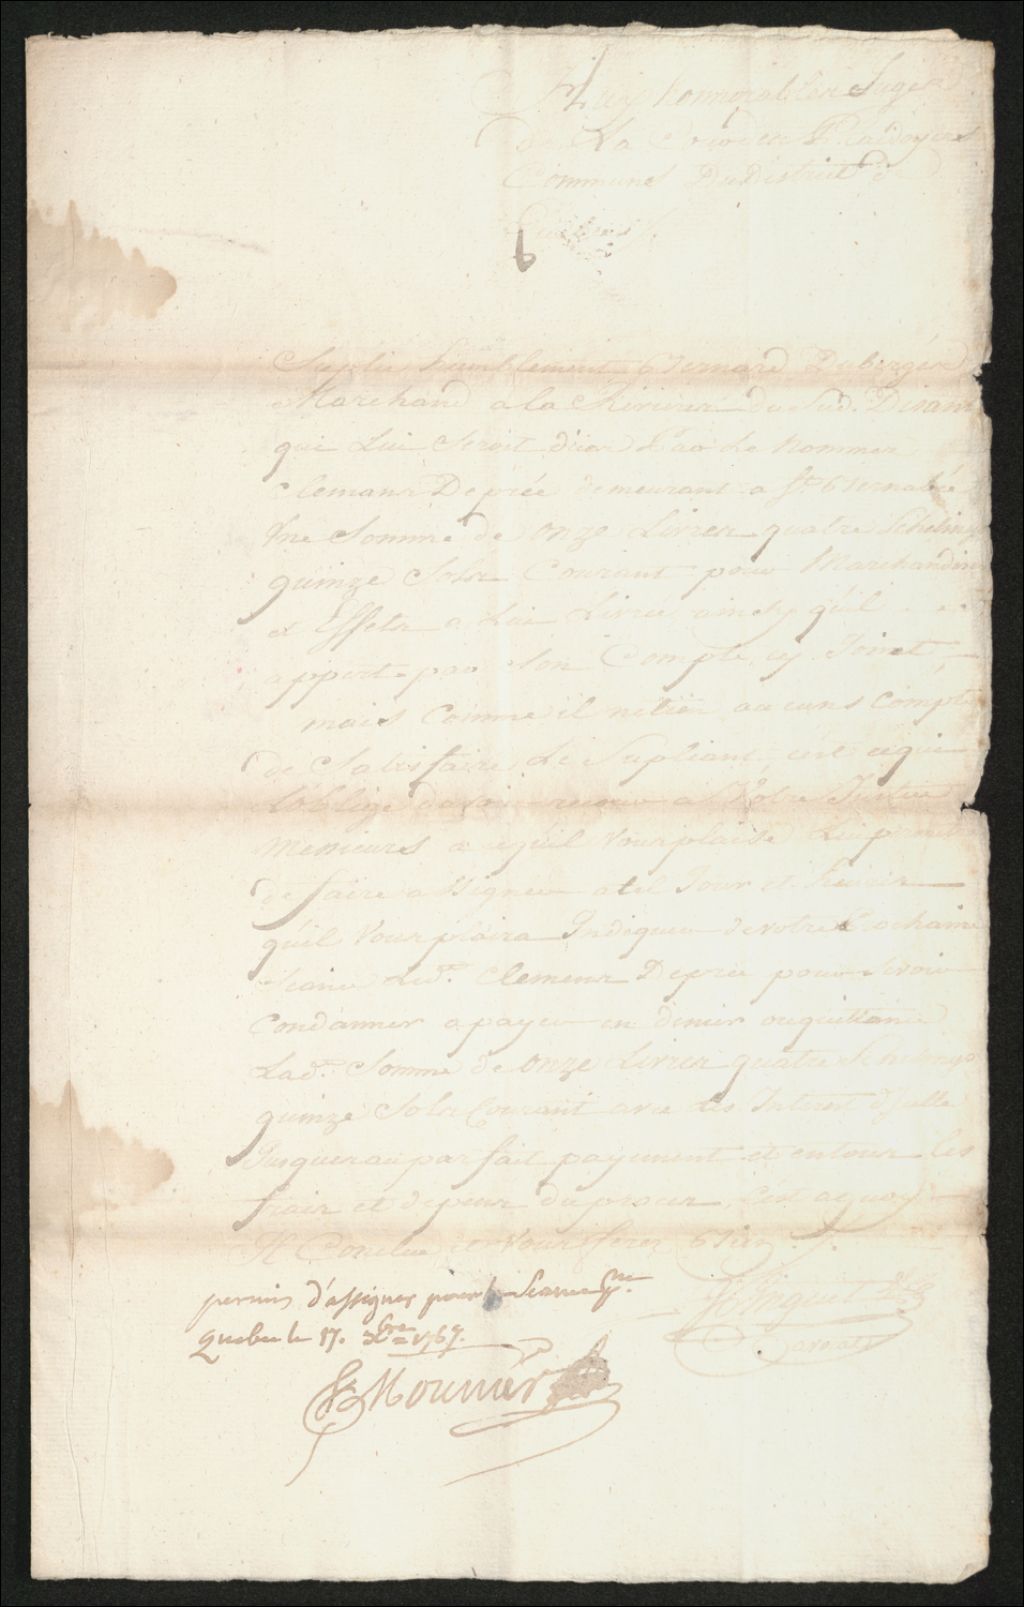 Aux honnorables Juges
de La Cour des Plaidoyers
Communs Du District de
Quebec ./.
Suplie humblement Bernard Duberger
Marchand a la Riviere du Sud. Disant
que Lui Seroit düe Par Le Nommer
Clemans Deprée demeurant a St.
Une Somme de Onze Livres quatre Schelings
quinze Sols Courant pour Marchandises
et Effets a Lui Livrée ainsy qu'il
appert par Son Compte cy Joinct,
mais Comme il ne tien aucuns Compte
de Satisfaire Le Supliant, cest cequi
Loblige davoir recour a Votre Justice
Messieurs a cequil Vous plaise Lui permettre
de faire assigner a tel Jour et heures
quil Vous plaira Indiquer de votre Prochaine
Seance Led. Clemens Deprée pour Sevoir
Condanner a payer en denier ou quittance
Lad. Somme de Onze Livres quatre Schelings
quinze Sols Courant avec Les Interest d'Jcelle
Jusques au parfait payement et en tous Les
frais et depens du proces, Cest aquoy
Il Conclue et Vous ferez Bien ./.
permis d'assigner pour la Seance
Quebec le 17. 1767.
Avocat
Mounier